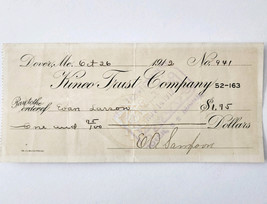 Dover, Me. Oct 26 1912 No. 941
Kineo Trust Company 52-163
Pay to the order of Evan Larson $1.95
One and 95/100 Dollars
E.D. Sampson